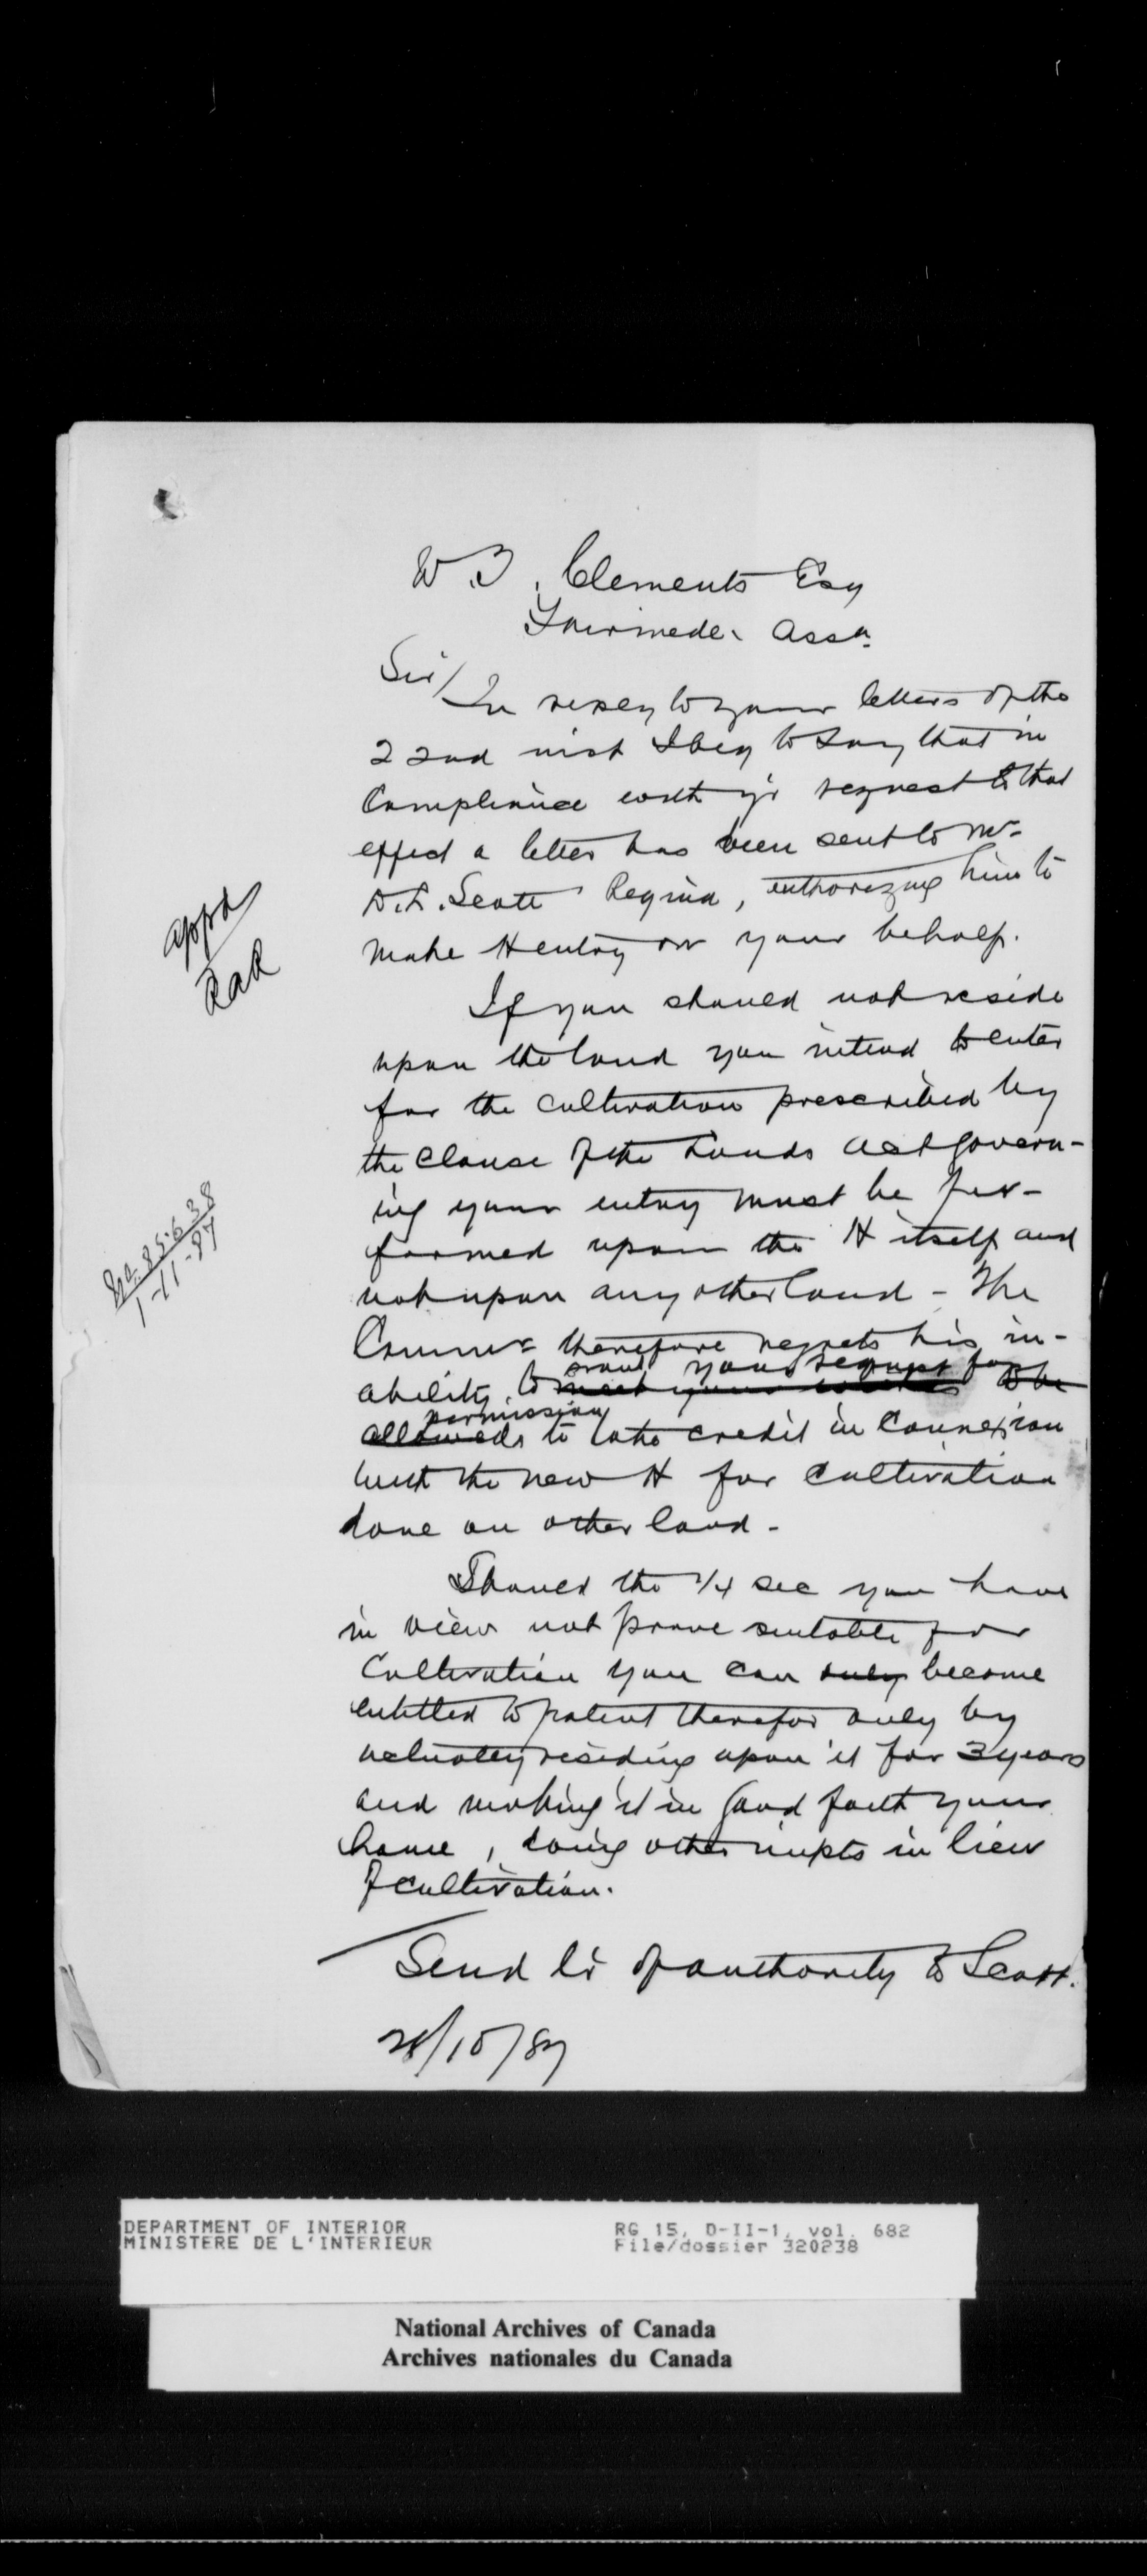 W. B. Clements Esq
Assa.
Sir/
In reply to your letters of the
22nd inst I beg to say that in
Compliance with yr request to that
effect a letter has been sent to Mr
D.L. Scott Regina, authorizing him to
make H entry on your behalf.
If you should not reside
upon the land you intend to enter
for the cultivation prescribed by
the Clause of the Lands Act govern-
ing your entry must be per-
formed upon the H itself and
not upon any other land - The
Commr therefore regrets his in-
grant your request for
ability to meet your wishes to be
permission
allowed to take credit in Connexion
with the new H for cultivation
done on other land -
Should the 1/4 sec you have
in view not prove suitable for
Cultivation you can only become
entitled to patent therefor only by
actually residing upon it for 3 years
and making it in good faith your
home, doing other impts in lieu
of cultivation.
Send lr of authority to Scott.
28/10/87
appd
RAR
No. 85638
1-11-87
DEPARTMENT OF INTERIOR
MINISTERE DE L'INTERIEUR
RG 15, D-II-1, vol. 682
File/dossier 320238
National Archives of Canada
Archives nationales du Canada